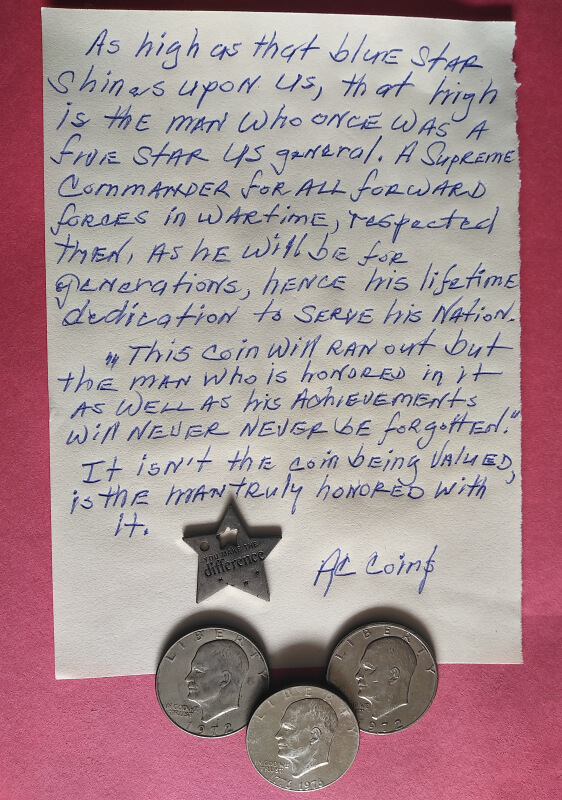 As high as that blue Star
Shines upon us, that high
is the man who once was a
five star US general. A Supreme
Commander for all forward
forces in wartime, respected
then, as he will be for
generations, hence his lifetime
dedication to serve his Nation.
"This coin will ran out but
the man who is honored in it
as well as his achievements
will never never be forgotten."
It isn't the coin being valued,
is the man truly honored with
it.
YOU MAKE THE
difference
AC Coins
LIBERTY
IN GOD WE
TRUST
1972
LIBERTY
IN GOD WE
TRUST
1976
LIBERTY
TRUST
1972